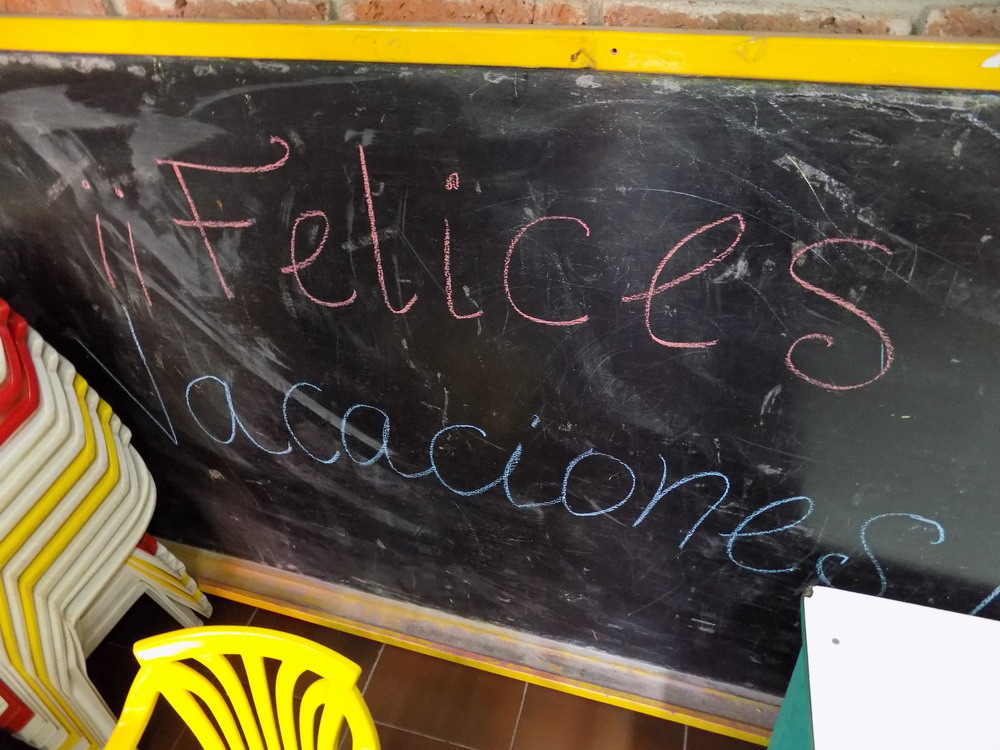 ¡¡Felices
Vacaciones